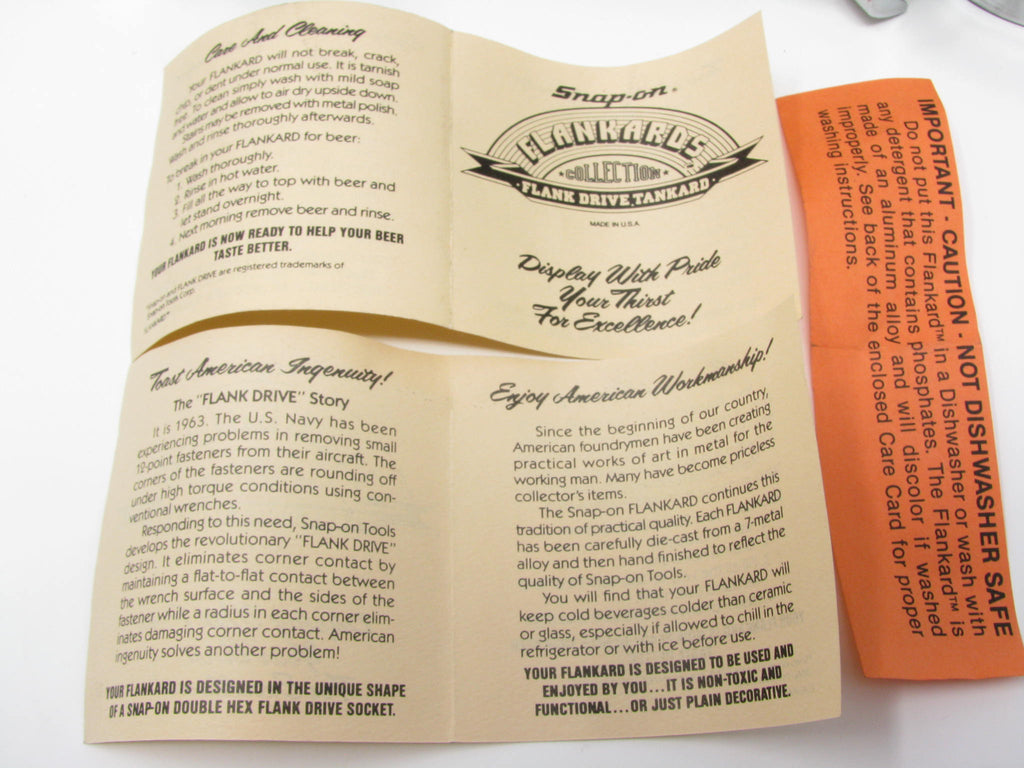 Care And Cleaning
Your FLANKARD will not break, crack,
chip, or dent under normal use. It is tarnish
free. To clean simply wash with mild soap
and water and allow to air dry upside down.
Stains may be removed with metal polish.
Wash and rinse thoroughly afterwards.
To break in your FLANKARD for beer:
1. Wash thoroughly.
2. Rinse in hot water.
3. Fill all the way to top with beer and
let stand overnight.
4. Next morning remove beer and rinse.
YOUR FLANKARD IS NOW READY TO HELP YOUR BEER
TASTE BETTER.
Snap-on and FLANK DRIVE are registered trademarks of
Snap-on Tools Corp.
FLANKARD™
Snap-on®
FLANKARDS
COLLECTION
FLANK DRIVE TANKARD
MADE IN U.S.A.
Display With Pride
Your Thirst
For Excellence!
Toast American Ingenuity!
The "FLANK DRIVE" Story
It is 1963. The U.S. Navy has been
experiencing problems in removing small
12-point fasteners from their aircraft. The
corners of the fasteners are rounding off
under high torque conditions using con-
ventional wrenches.
Responding to this need, Snap-on Tools
develops the revolutionary "FLANK DRIVE"
design. It eliminates corner contact by
maintaining a flat-to-flat contact between
the wrench surface and the sides of the
fastener while a radius in each corner elim-
inates damaging corner contact. American
ingenuity solves another problem!
YOUR FLANKARD IS DESIGNED IN THE UNIQUE SHAPE
OF A SNAP-ON DOUBLE HEX FLANK DRIVE SOCKET.
Enjoy American Workmanship!
Since the beginning of our country,
American foundrymen have been creating
practical works of art in metal for the
working man. Many have become priceless
collector's items.
The Snap-on FLANKARD continues this
tradition of practical quality. Each FLANKARD
has been carefully die-cast from a 7-metal
alloy and then hand finished to reflect the
quality of Snap-on Tools.
You will find that your FLANKARD will
keep cold beverages colder than ceramic
or glass, especially if allowed to chill in the
refrigerator or with ice before use.
YOUR FLANKARD IS DESIGNED TO BE USED AND
ENJOYED BY YOU...IT IS NON-TOXIC AND
FUNCTIONAL...OR JUST PLAIN DECORATIVE.
IMPORTANT - CAUTION - NOT DISHWASHER SAFE
Do not put this Flankard™ in a Dishwasher or wash with
any detergent that contains phosphates. The Flankard™ is
made of an aluminum alloy and will discolor if washed
improperly. See back of the enclosed Care Card for proper
washing instructions.